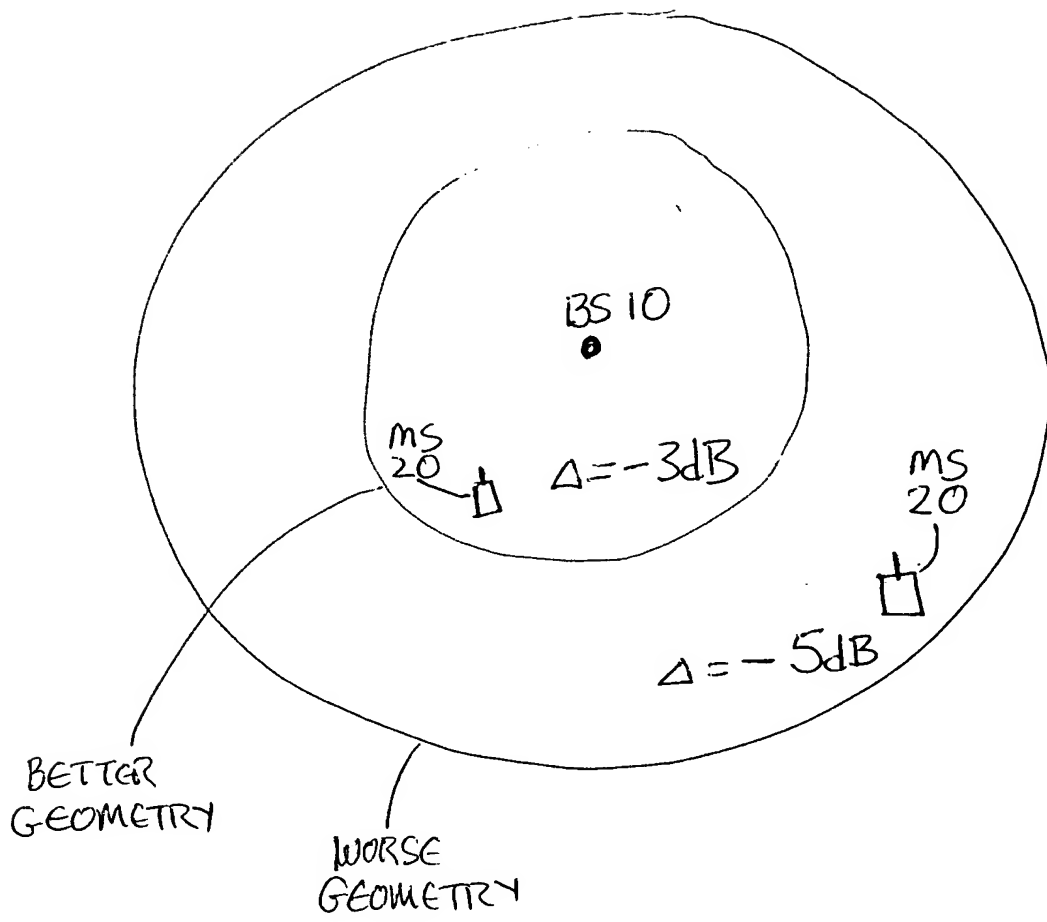 BS 10
MS
20
Δ=-3dB
MS
20
Δ=-5dB
BETTER
GEOMETRY
WORSE
GEOMETRY